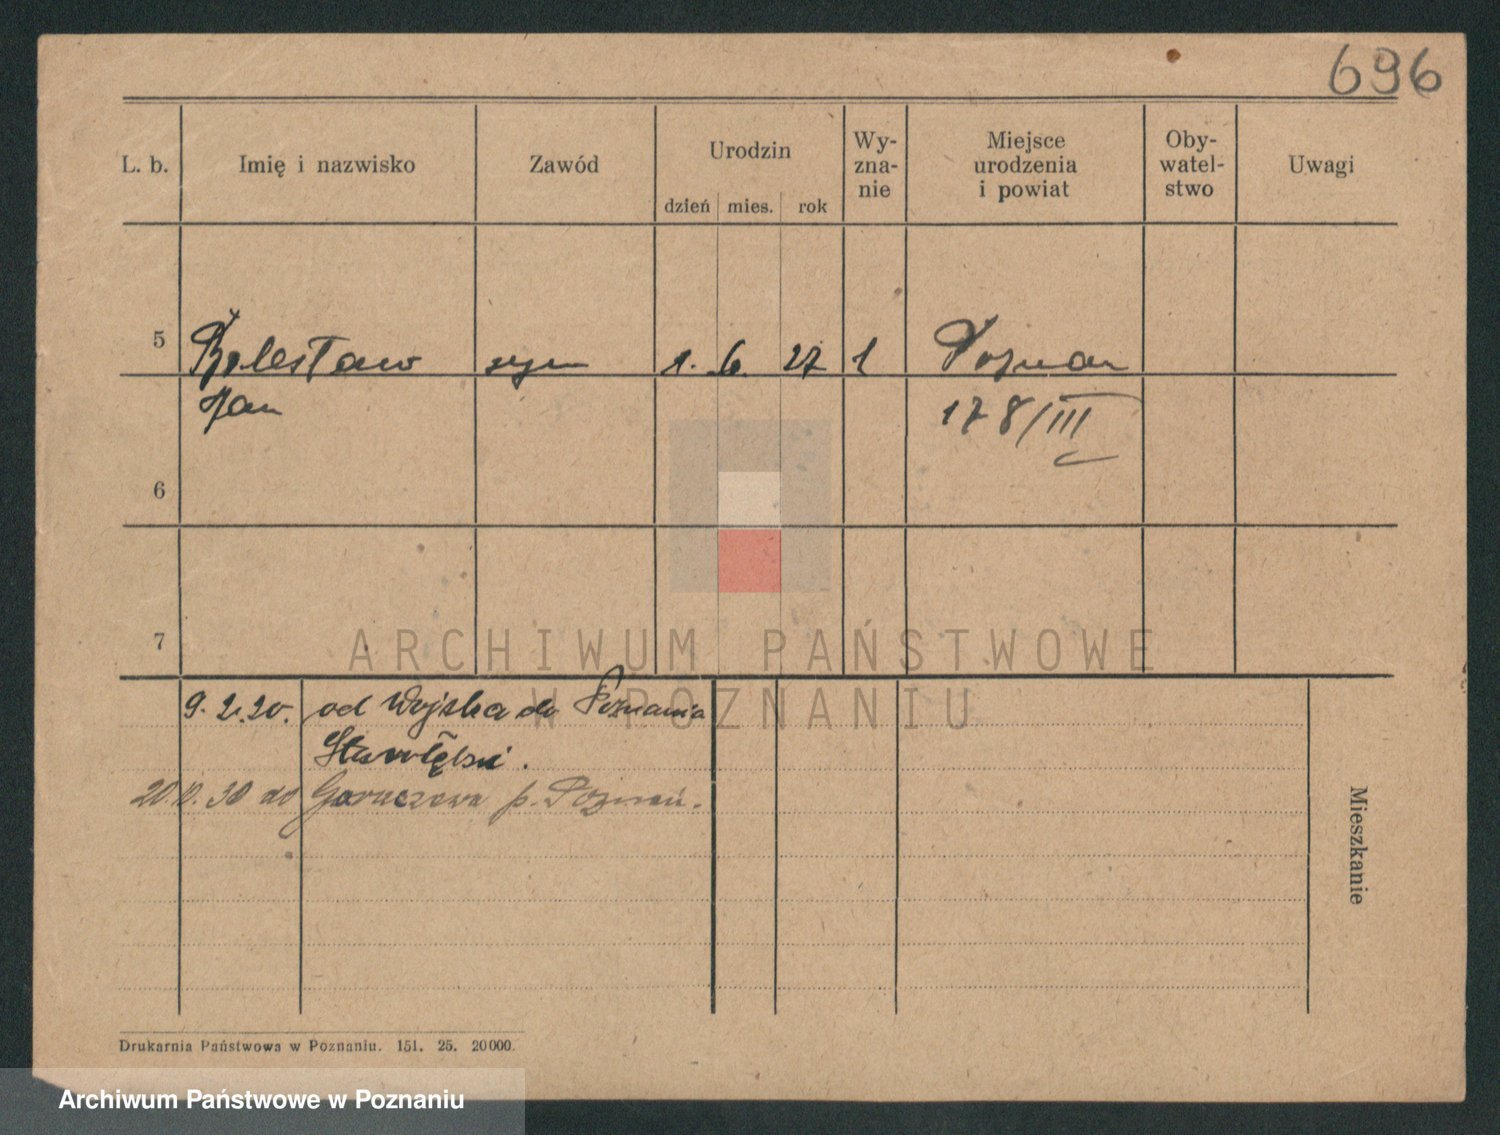 696
L. b. Imię i nazwisko Zawód Urodzin Wy-zna-nie Miejsce urodzenia i powiat Oby-watel-stwo Uwagi
dzień mies. rok
5 Bolesław syn 1. 6. 27 1 Poznań
Jan 178/III
6
7
ARCHIWUM PAŃSTWOWE
W POZNANIU
9. 2. 20. od Wojska do Poznania
Starołęka.
20.10.30 do p. Poznań.
Mieszkanie
Drukarnia Państwowa w Poznaniu. 151. 25. 20000.
Archiwum Państwowe w Poznaniu